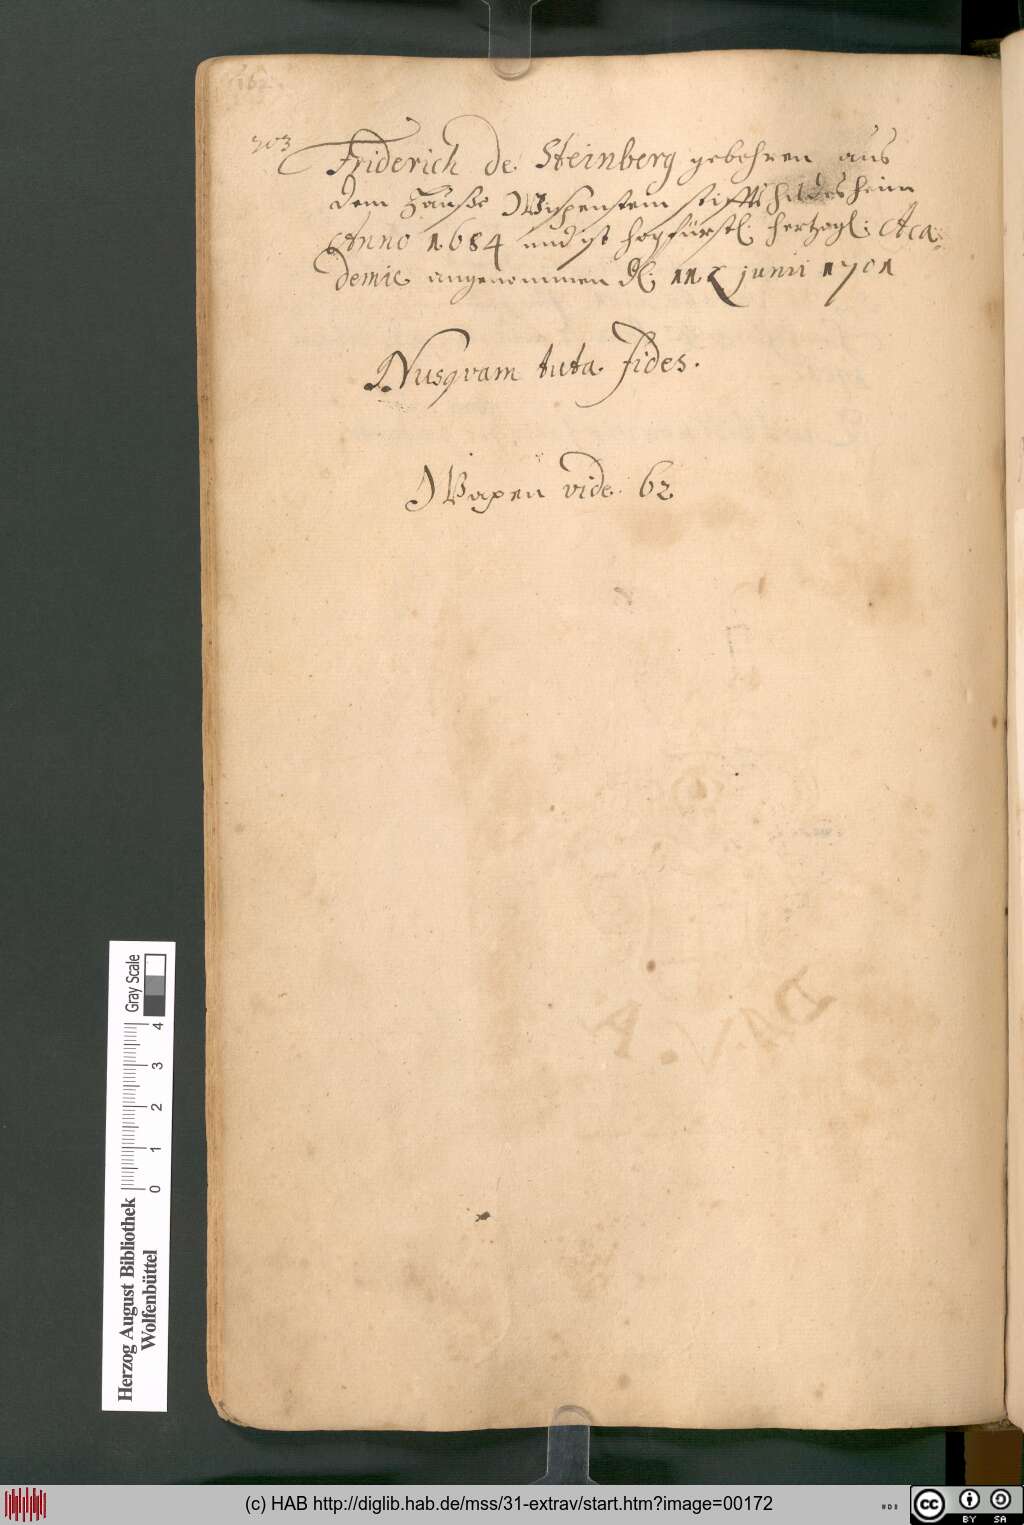 162.
303 Friderich de Steinberg gebohren aus
dem Hausße Wispenstein stiffts hildesheim
Anno 1684 und ist hoffürstl. hertzogl: Aca:
demie angenommen d. 11 junii 1701
Nusqvam tuta fides.
Wapen vide. 62
Gray Scale
0 1 2 3 4
Herzog August Bibliothek
Wolfenbüttel
(c) HAB http://diglib.hab.de/mss/31-extrav/start.htm?image=00172
cc BY SA